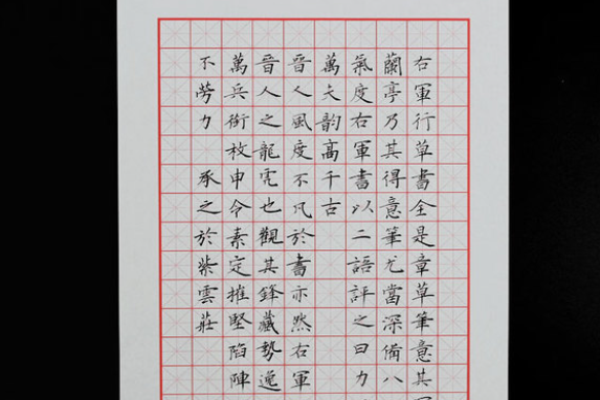 右軍行草書全是章草筆意其
蘭亭乃其得意筆尤當深備八
氣度右軍書以二語評之曰力
萬夫韵高千古
晉人風度不凡於書亦然右軍
晉人之龍虎也觀其鋒藏勢逸
萬兵銜枚申令素定摧堅陷陣
不勞力 承之於紫雲莊